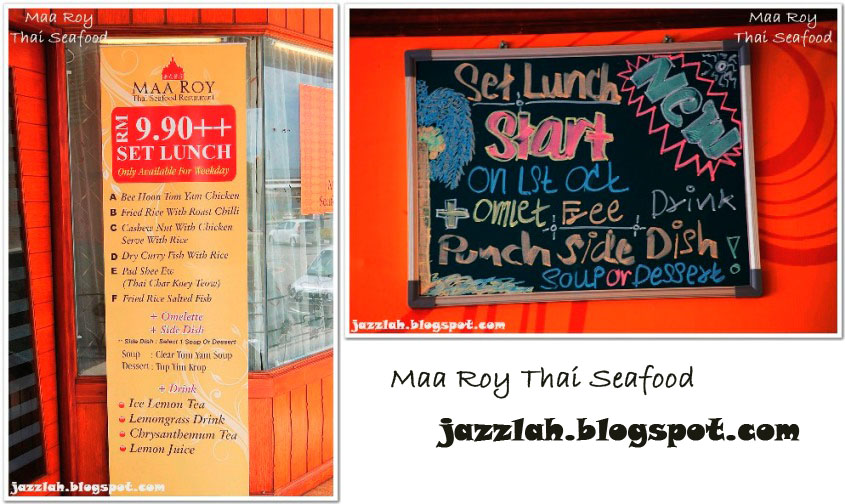 Maa Roy
Thai Seafood
MAA ROY
Thai Seafood Restaurant
RM 9.90++
SET LUNCH
Only Available For Weekday
A Bee Hoon Tom Yam Chicken
B Fried Rice With Roast Chilli
C Cashew Nut With Chicken
Serve With Rice
D Dry Curry Fish With Rice
E Pad Shee Ew
(Thai Char Kuey Teow)
F Fried Rice Salted Fish
+ Omelette
+ Side Dish
** Side Dish : Select 1 Soup Or Dessert
Soup : Clear Tom Yam Soup
Dessert : Tup Tim Krop
+ Drink
Ice Lemon Tea
Lemongrass Drink
Chrysanthemum Tea
Lemon Juice
jazzlah.blogspot.com
Maa Roy
Thai Seafood
Set Lunch
New
Start
on 1st oct
+ omlet Free Drink
Punch Side Dish !
Soup or Dessert.
jazzlah.blogspot.com
Maa Roy Thai Seafood
jazzlah.blogspot.com